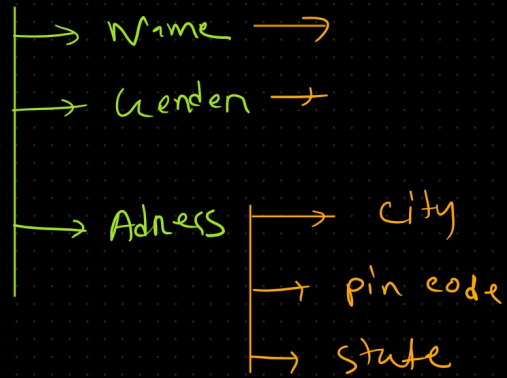 Name
Gender
Adress
City
pin code
state